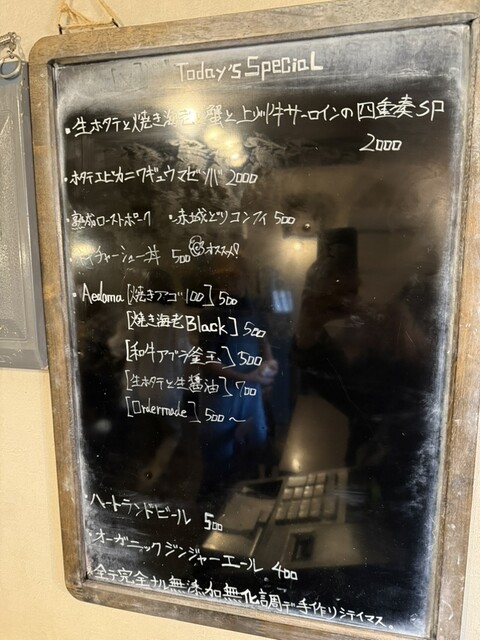 Today's Special
・生ホタテと焼き海老、蟹と上州牛サーロインの四重奏SP
2000
・ホタテエビカニワギュウマゼソバ 2000
・熟成ローストポーク ・赤城どりコンフィ 500
チャーシュー丼 500 オススメ!
・Aedama [焼きアゴ100] 500
[焼き海老Black] 500
[和牛アブラ釜玉] 500
[生ホタテと生醤油] 700
[Ordermade] 500～
・ハートランドビール 500
・オーガニックジンジャーエール 400
・全テ完全ナル無添加無化調デ手作リシテイマス。